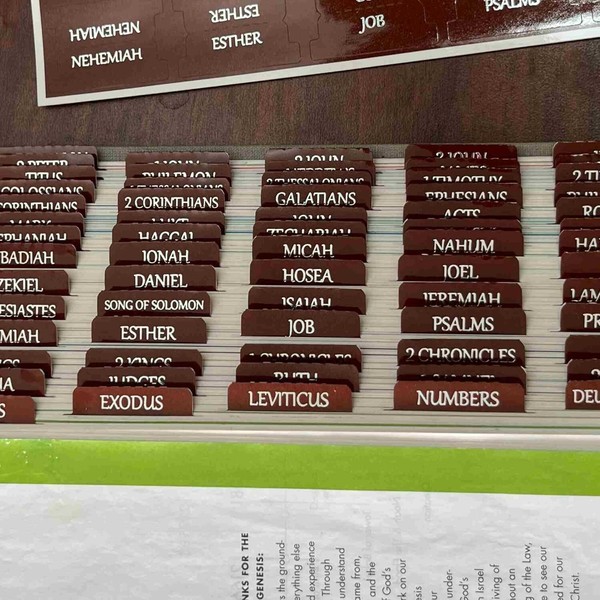 NEHEMIAH
ESTHER
PSALMS
NEHEMIAH
ESTHER
JOB
2 PETER
1 JOHN
2 JOHN
3 JOHN
TITUS
PHILEMON
COLOSSIANS
2 THESSALONIANS
1 TIMOTHY
2 CORINTHIANS
GALATIANS
EPHESIANS
MARK
LUKE
JOHN
ACTS
HAGGAI
ZECHARIAH
BADIAH
JONAH
MICAH
NAHUM
ZEKIEL
DANIEL
HOSEA
JOEL
ESIASTES
SONG OF SOLOMON
ISAIAH
JEREMIAH
LAM
MIAH
ESTHER
JOB
PSALMS
PR
2 KINGS
1 CHRONICLES
2 CHRONICLES
JUDGES
RUTH
EXODUS
LEVITICUS
NUMBERS
DEU
NKS FOR THE
GENESIS:
s the ground-
erything else
d experience
Through
understand
ame from,
and the
God's
rk on our
esis
ur
under-
od's
n Israel
iving of
bout an
g of the Law,
e to see our
d for our
Christ.